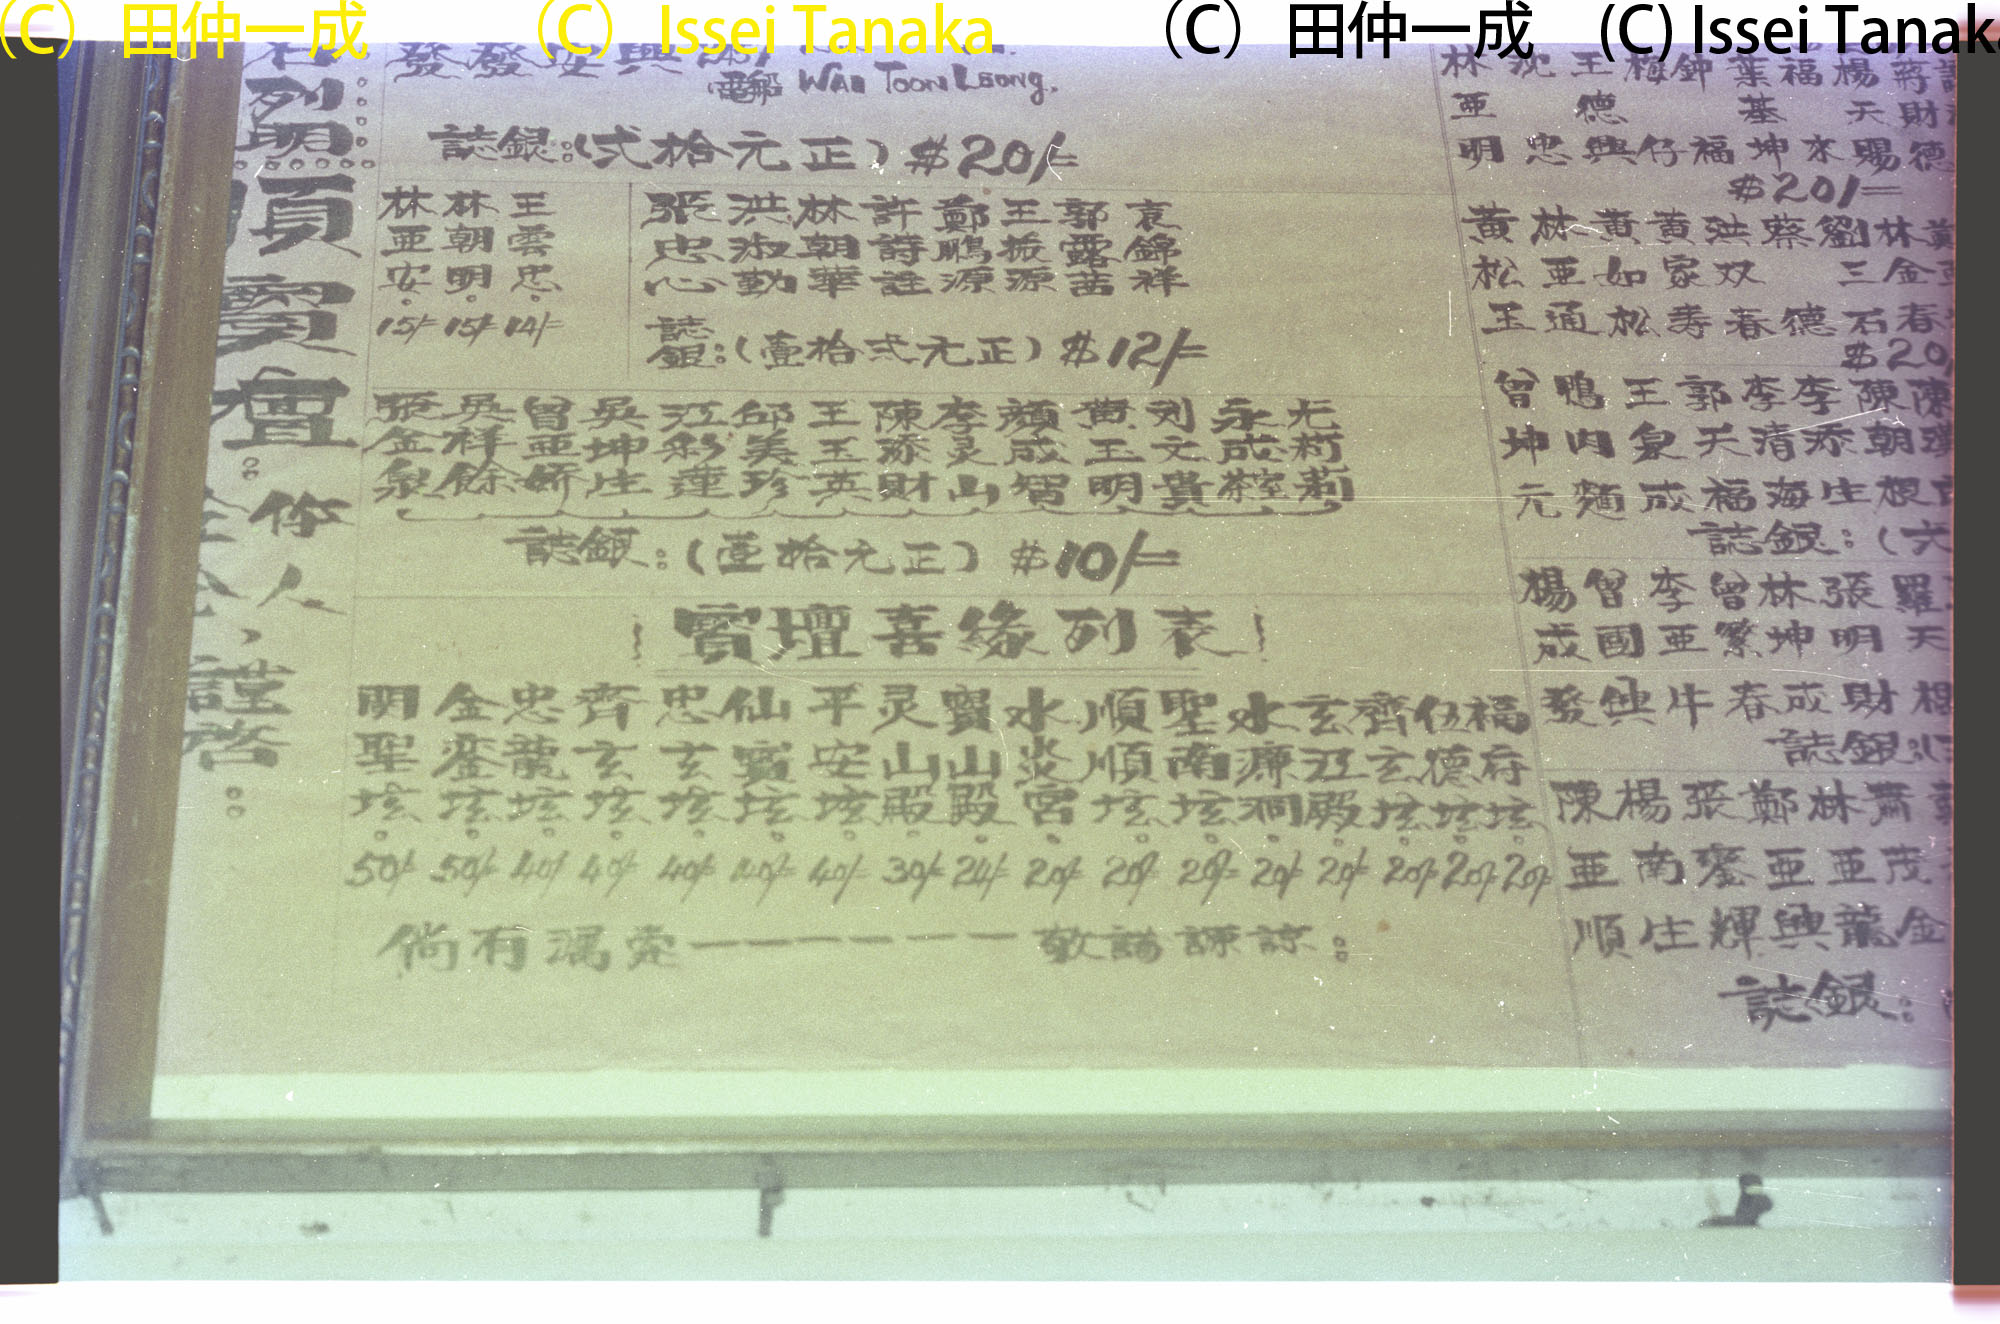 (C) 田仲一成
(C) Issei Tanaka
(C) 田仲一成
(C) Issei Tanaka
列明
順寶壇
你
人
謹啓：
發發安興
電船 WAI TOON LEONG.
誌銀：(弍拾元正) $20/=
林亞安 15/=
林朝明 15/=
王雲忠 14/=
張忠心
洪淑勤
林朝華
許詩詮
鄭鵬源
王振源
郭露茜
袁錦祥
誌銀：(壹拾弍元正) $12/=
張金泉
吳祥餘
曾亞嬌
吳坤生
江彩蓮
邱美珍
王玉英
陳添財
李灵山
顏成智
黃玉明
刘文貴
永成茶室
尤莉莉
誌銀：(壹拾元正) $10/=
寶壇喜緣列表
明聖垓 50/=
金鑾垓 50/=
忠龍垓 40/=
齊玄垓 40/=
忠玄垓 40/=
仙寶垓 40/=
平安垓 40/=
灵山殿 30/=
寶山殿 24/=
水炎宮 20/=
順順垓 20/=
聖南垓 20/=
水濂洞 20/=
玄江殿 20/=
齊玄垓 20/=
伍德垓 20/=
福府垓 20/=
倘有漏意一一一一一一敬請諒諒：
林亞明
沈忠
王德興
梅仔
鐘福
葉基坤
福來
楊天賜
$20/=
黃松玉
林亞通
黃如松
黃家壽
洪双春
蔡德
劉三石
林金春
$20/
曾坤元
鴨肉麵
王泉成
郭天福
李清海
李添生
陳朝根
誌銀：(六
楊成發
曾國興
李亞牛
曾繁春
林坤成
張明財
誌銀：
陳亞順
楊南生
張鑾輝
鄭亞興
林亞龍
蕭茂金
誌銀：